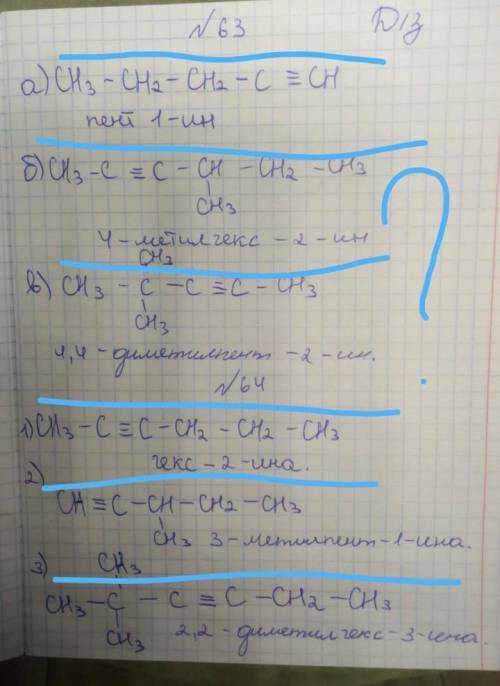 №63 Д/з
а) CH3 - CH2 - CH2 - C ≡ CH
пент 1-ин
б) CH3 - C ≡ C - CH - CH2 - CH3
CH3
4-метилгекс-2-ин
CH3
в) CH3 - C - C ≡ C - CH3
CH3
4,4-диметилпент-2-ин.
№64
1) CH3 - C ≡ C - CH2 - CH2 - CH3
гекс-2-ина.
2)
CH ≡ C - CH - CH2 - CH3
CH3 3-метилпент-1-ина.
3) CH3
CH3 - C - C ≡ C - CH2 - CH3
CH3 2,2-диметилгекс-3-ина.
?